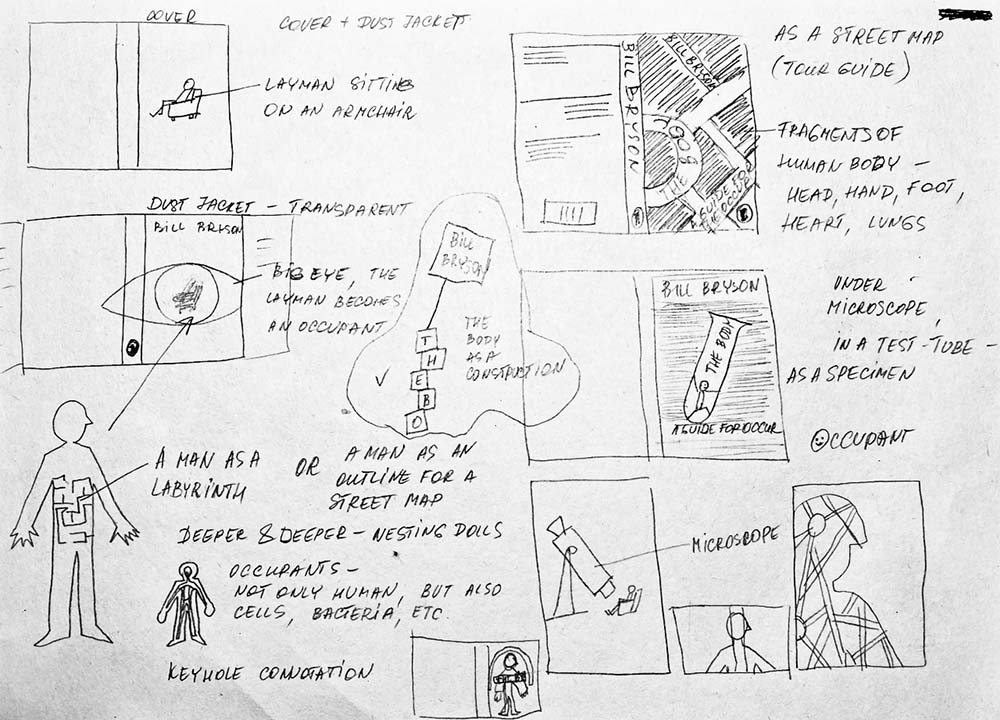 COVER
COVER + DUST JACKET
LAYMAN SITTING
ON AN ARMCHAIR
AS A STREET MAP
(TOUR GUIDE)
BILL BRYSON
BILL BRYSON
THE BODY
A GUIDE FOR
THE OCCUP
FRAGMENTS OF
HUMAN BODY –
HEAD, HAND, FOOT,
HEART, LUNGS
DUST JACKET – TRANSPARENT
BILL BRYSON
BIG EYE, THE
LAYMAN BECOMES
AN OCCUPANT
BILL
BRYSON
T
H
E
B
O
THE
BODY
AS A
CONSTRUCTION
BILL BRYSON
THE BODY
A GUIDE FOR OCCUP
UNDER
MICROSCOPE,
IN A TEST-TUBE –
AS A SPECIMEN
OCCUPANT
A MAN AS A
LABYRINTH
OR
A MAN AS AN
OUTLINE FOR A
STREET MAP
DEEPER & DEEPER – NESTING DOLLS
OCCUPANTS –
NOT ONLY HUMAN, BUT ALSO
CELLS, BACTERIA, ETC.
KEYHOLE CONNOTATION
MICROSCOPE